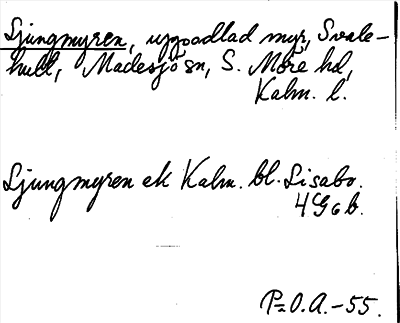 Ljungmyren, uppodlad myr, Svale-
hult, Madesjö sn, S. Möre hd,
Kalm. l.
Ljungmyren ek Kalm. bl. Lisabo.
4G6b.
P=O.A.-55.